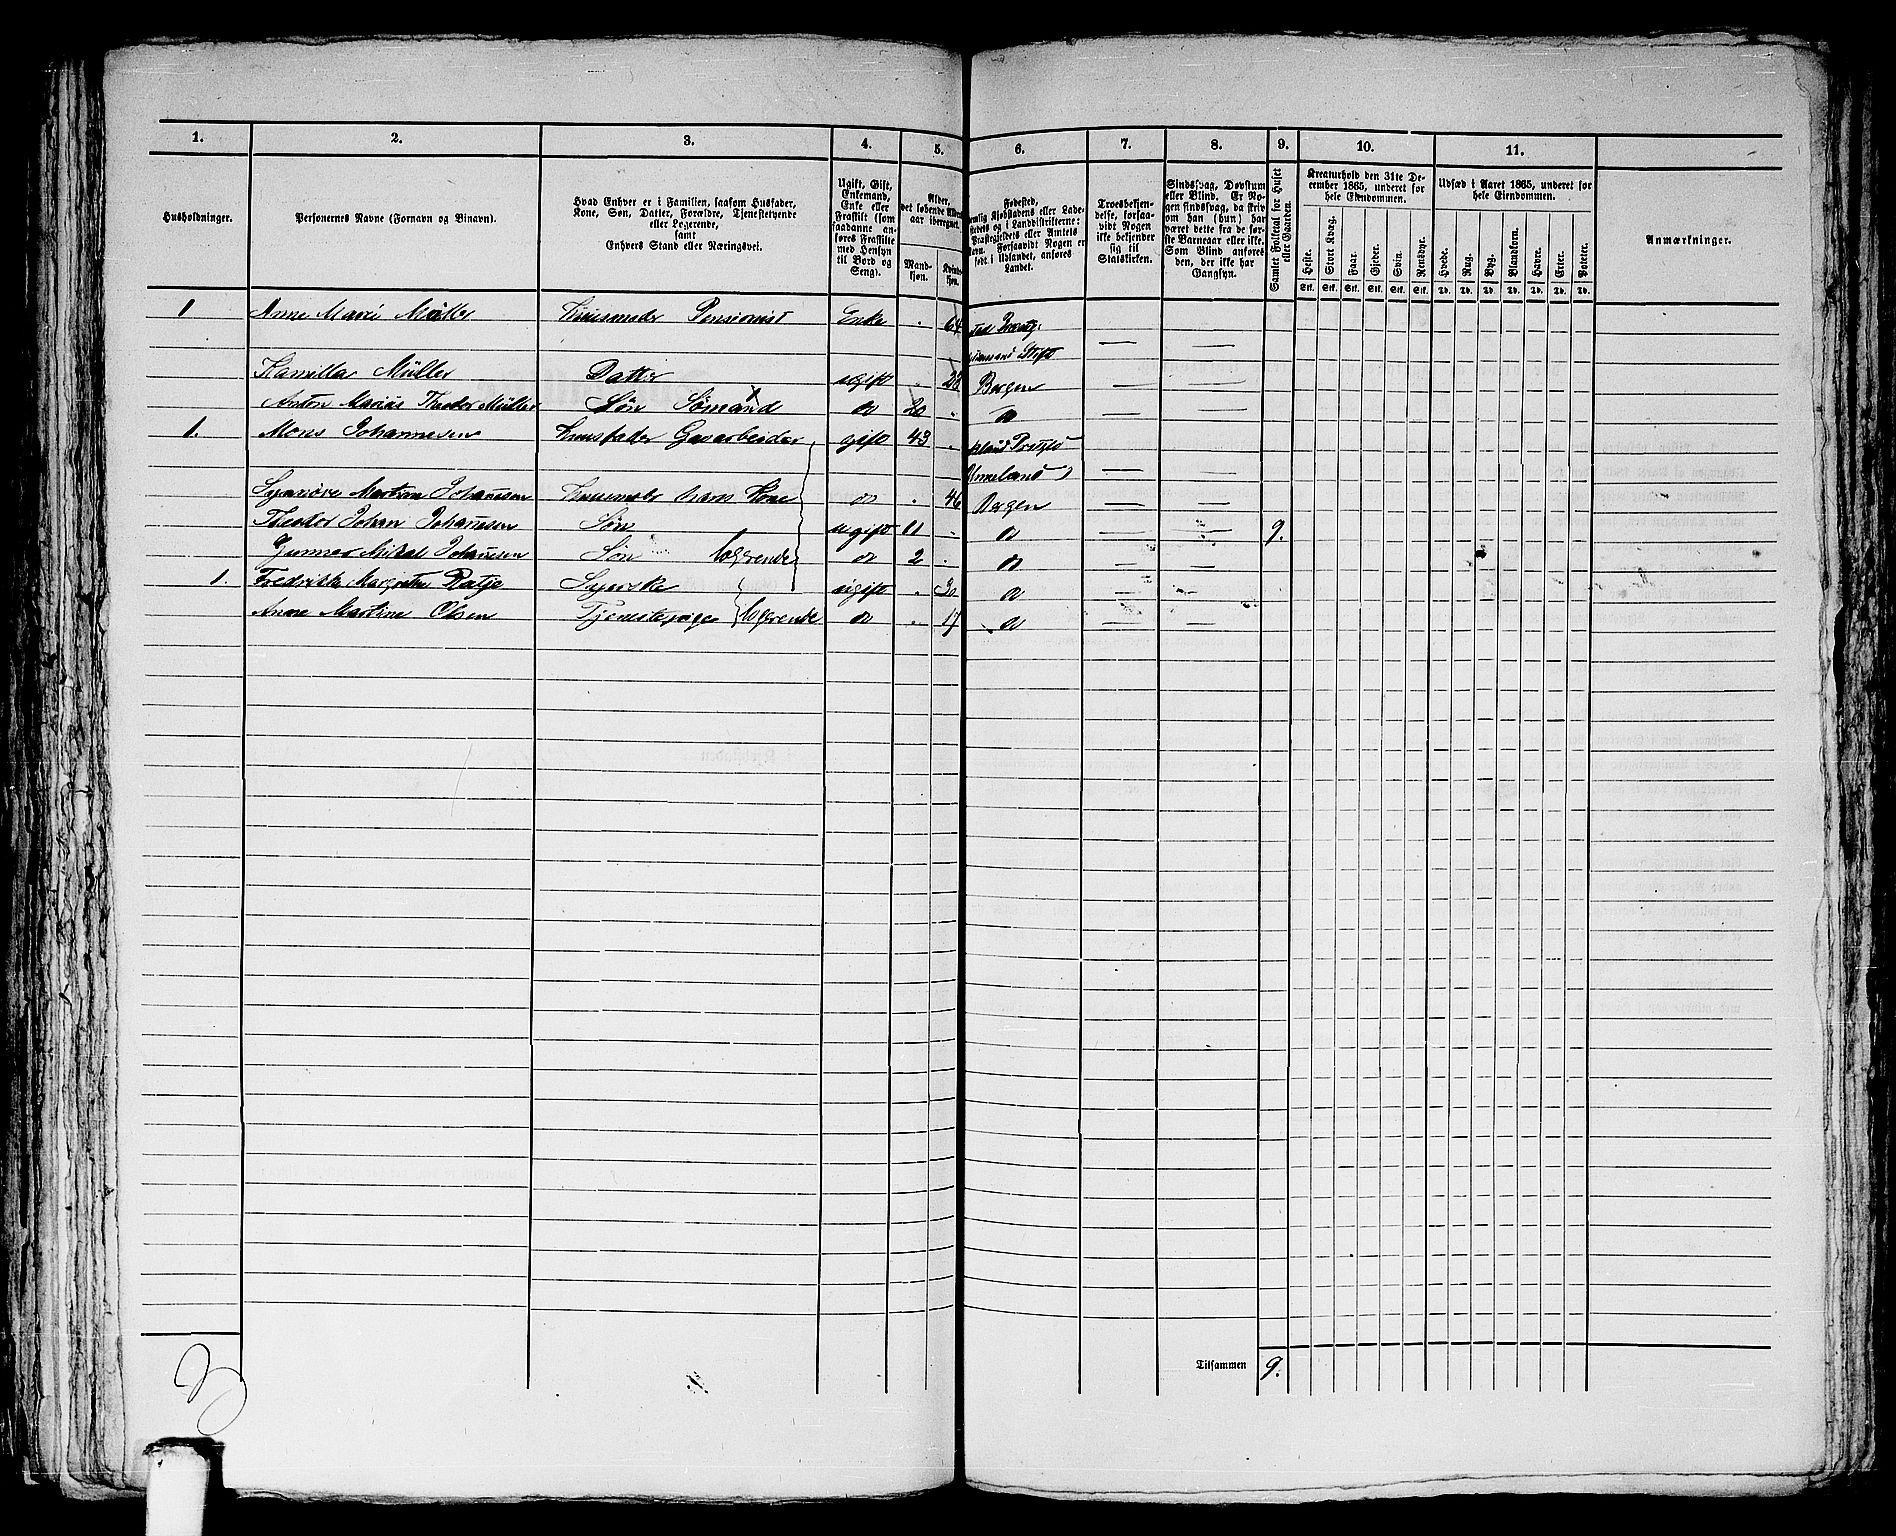 1. 2. 3. 4. 5. 6. 7. 8. 9. 10. 11.
Husholdninger.
Personernes Navne (Fornavn og Binavn).
Hvad Enhver er i Familien, saasom Husfader,
Kone, Søn, Datter, Forældre, Tjenestetyende
eller Logerende,
samt
Enhvers Stand eller Næringsvei.
Ugift, Gift,
Enkemand,
Enke eller
Fraskilt (som
saadanne an-
føres Fraskilte
med Hensyn
til Bord og
Seng).
Alder,
det løbende Alders-
aar iberegnet.
Mand-
kjøn.
Kvinde-
kjøn.
Fødested,
nemlig Kjøbstadens eller Lade-
stedets og i Landdistrikterne:
Præstegjeldets eller Amtets
Navn. Forsaavidt Nogen er
født i Udlandet, anføres
Landet.
Troesbekjen-
delse, forsaa-
vidt Nogen
ikke bekjender
sig til
Statskirken.
Sindssvag, Døvstum
eller Blind. Er No-
gen sindssvag, da skriv
om han (hun) har
været dette fra de før-
ste Barneaar eller ikke.
Som Blind anføres
den, der ikke har
Gangsyn.
Samlet Folketal for Huset
eller Gaarden.
Kreaturhold den 31te De-
cember 1865, underet for
hele Eiendommen.
Heste. Stort Kvæg. Faar. Gjeder. Svin. Rensdyr.
Stk. Stk. Stk. Stk. Stk. Stk.
Udsæd i Aaret 1865, underet for
hele Eiendommen.
Hvede. Rug. Byg. Blandkorn. Havre. Erter. Poteter.
Td. Td. Td. Td. Td. Td. Td.
Anmærkninger.
1 Anne Marie Müller Huusmoder Pensionist Enke " 64
Kamilla Müller Datter ugift " 23 Bergen
Anton Marius Theodor Müller Søn Sømand do 20 " do
1. Mons Johannesen Huusfader Gasarbeider gift 43 "
Synnøve Martine Johannesen hans Kone do " 46 Bergen
Theodor Johan Johannesen Søn ugift 11 " do 9.
Gunnar Mikal Johannesen Søn logerende do 2 " do
1. Fredrikke Margrethe Patje Syerske ugift " 30 do
Anne Martine Olsen Tjenestepige logerende do " 17 do
Tilsammen 9.
3